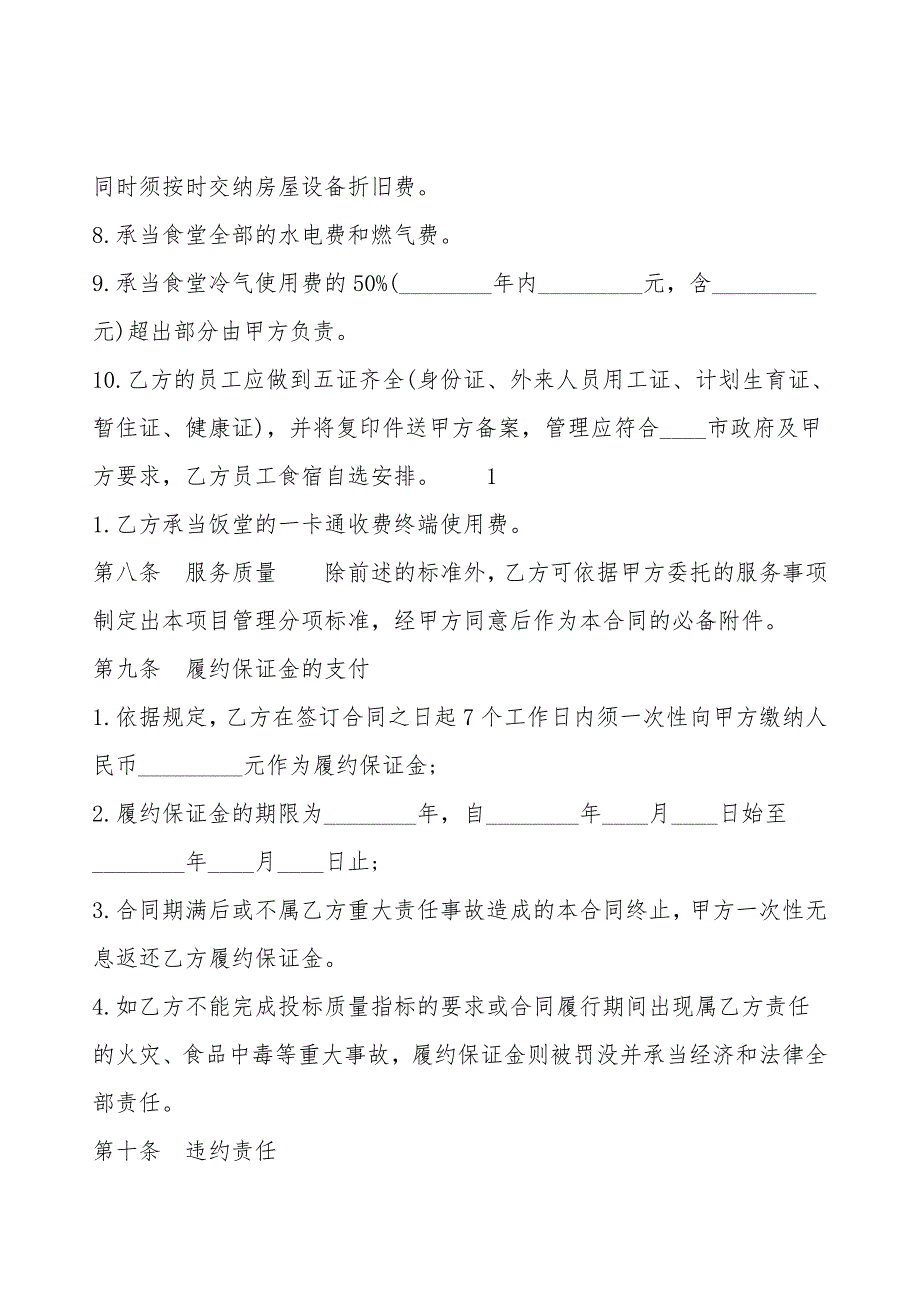 同时须按时交纳房屋设备折旧费。
8.承当食堂全部的水电费和燃气费。
9.承当食堂冷气使用费的50%(________年内_________元，含_________
元)超出部分由甲方负责。
10.乙方的员工应做到五证齐全(身份证、外来人员用工证、计划生育证、
暂住证、健康证)，并将复印件送甲方备案，管理应符合____市政府及甲
方要求，乙方员工食宿自选安排。　　1
1.乙方承当饭堂的一卡通收费终端使用费。
第八条　服务质量　　除前述的标准外，乙方可依据甲方委托的服务事项
制定出本项目管理分项标准，经甲方同意后作为本合同的必备附件。
第九条　履约保证金的支付
1.依据规定，乙方在签订合同之日起7个工作日内须一次性向甲方缴纳人
民币_________元作为履约保证金;
2.履约保证金的期限为________年，自________年____月____日始至
________年____月____日止;
3.合同期满后或不属乙方重大责任事故造成的本合同终止，甲方一次性无
息返还乙方履约保证金。
4.如乙方不能完成投标质量指标的要求或合同履行期间出现属乙方责任
的火灾、食品中毒等重大事故，履约保证金则被罚没并承当经济和法律全
部责任。
第十条　违约责任